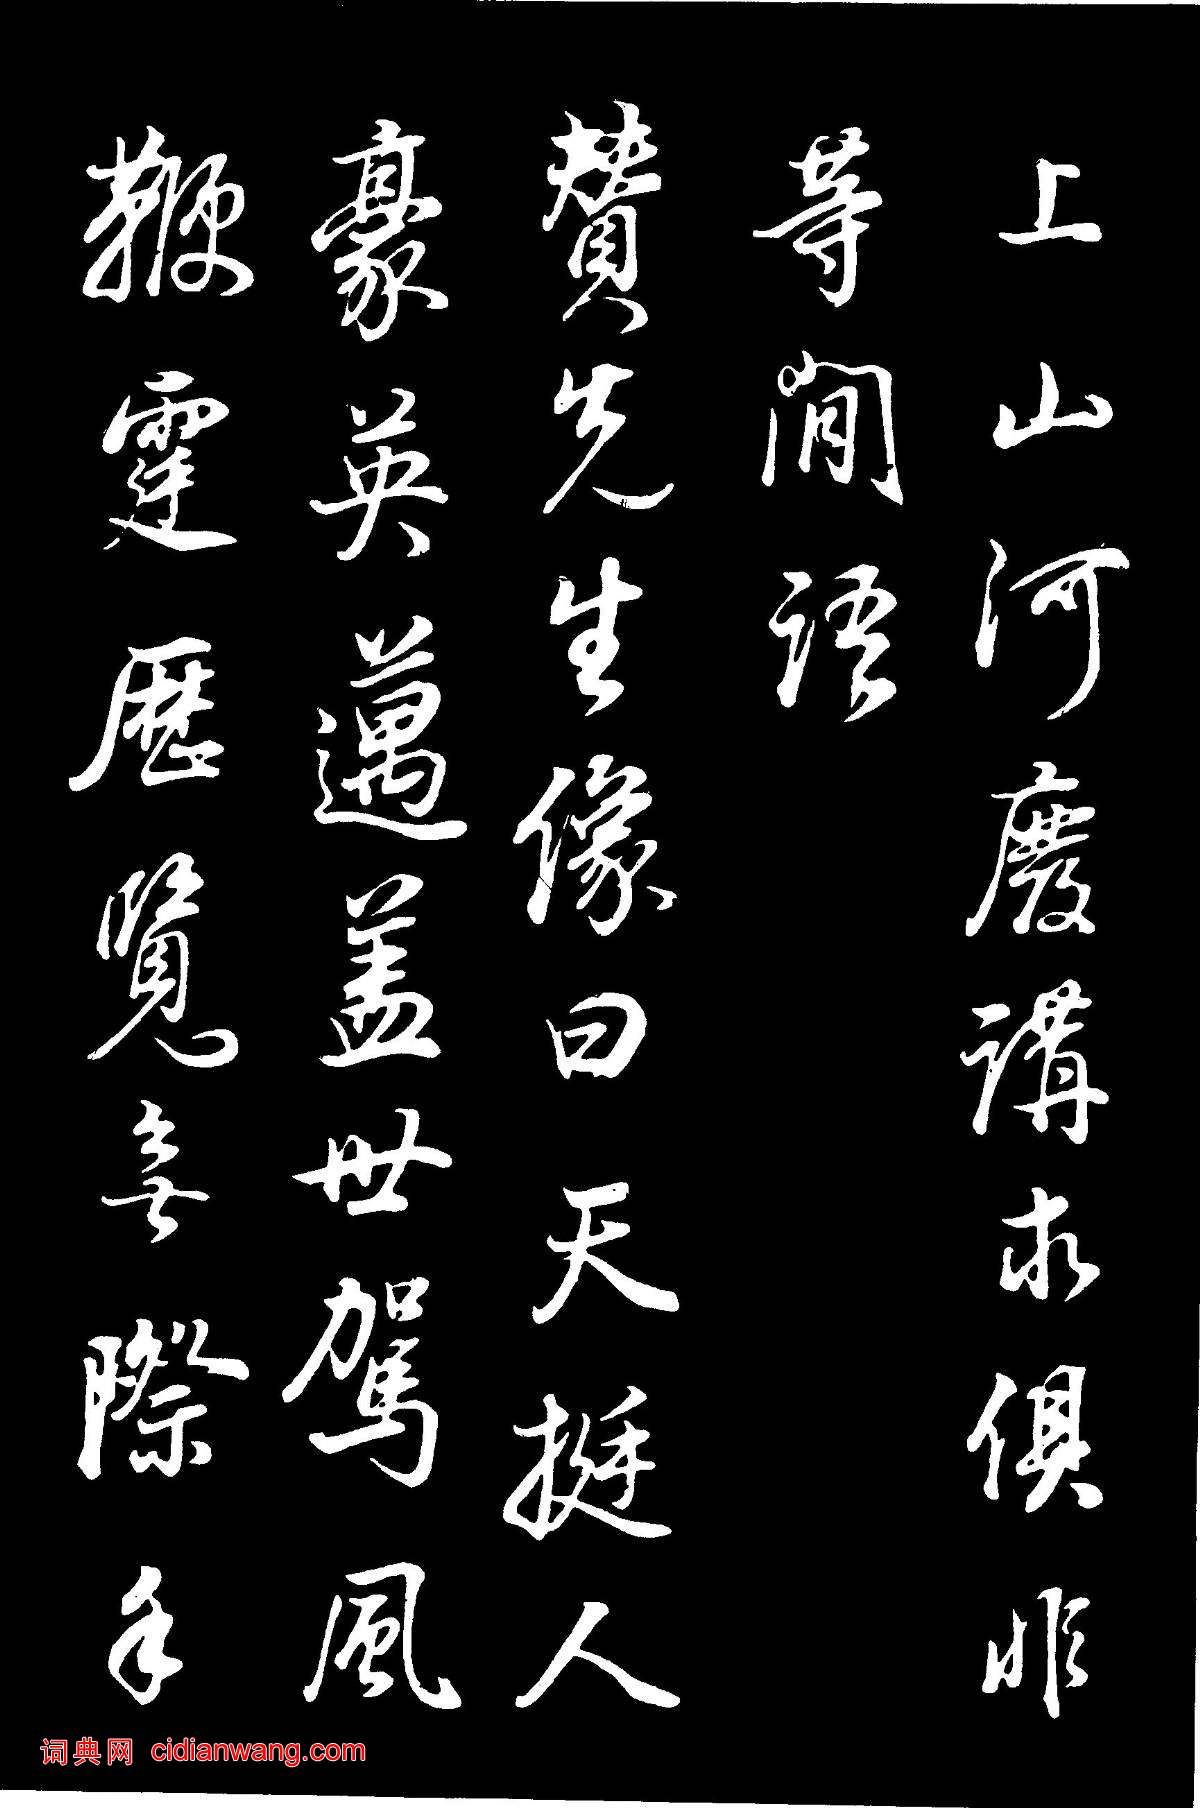 上山河廢講求俱非
等閒語
贊先生像曰天挺人
豪英邁蓋世駕風
鞭霆歷覽無際手
词典网 cidianwang.com